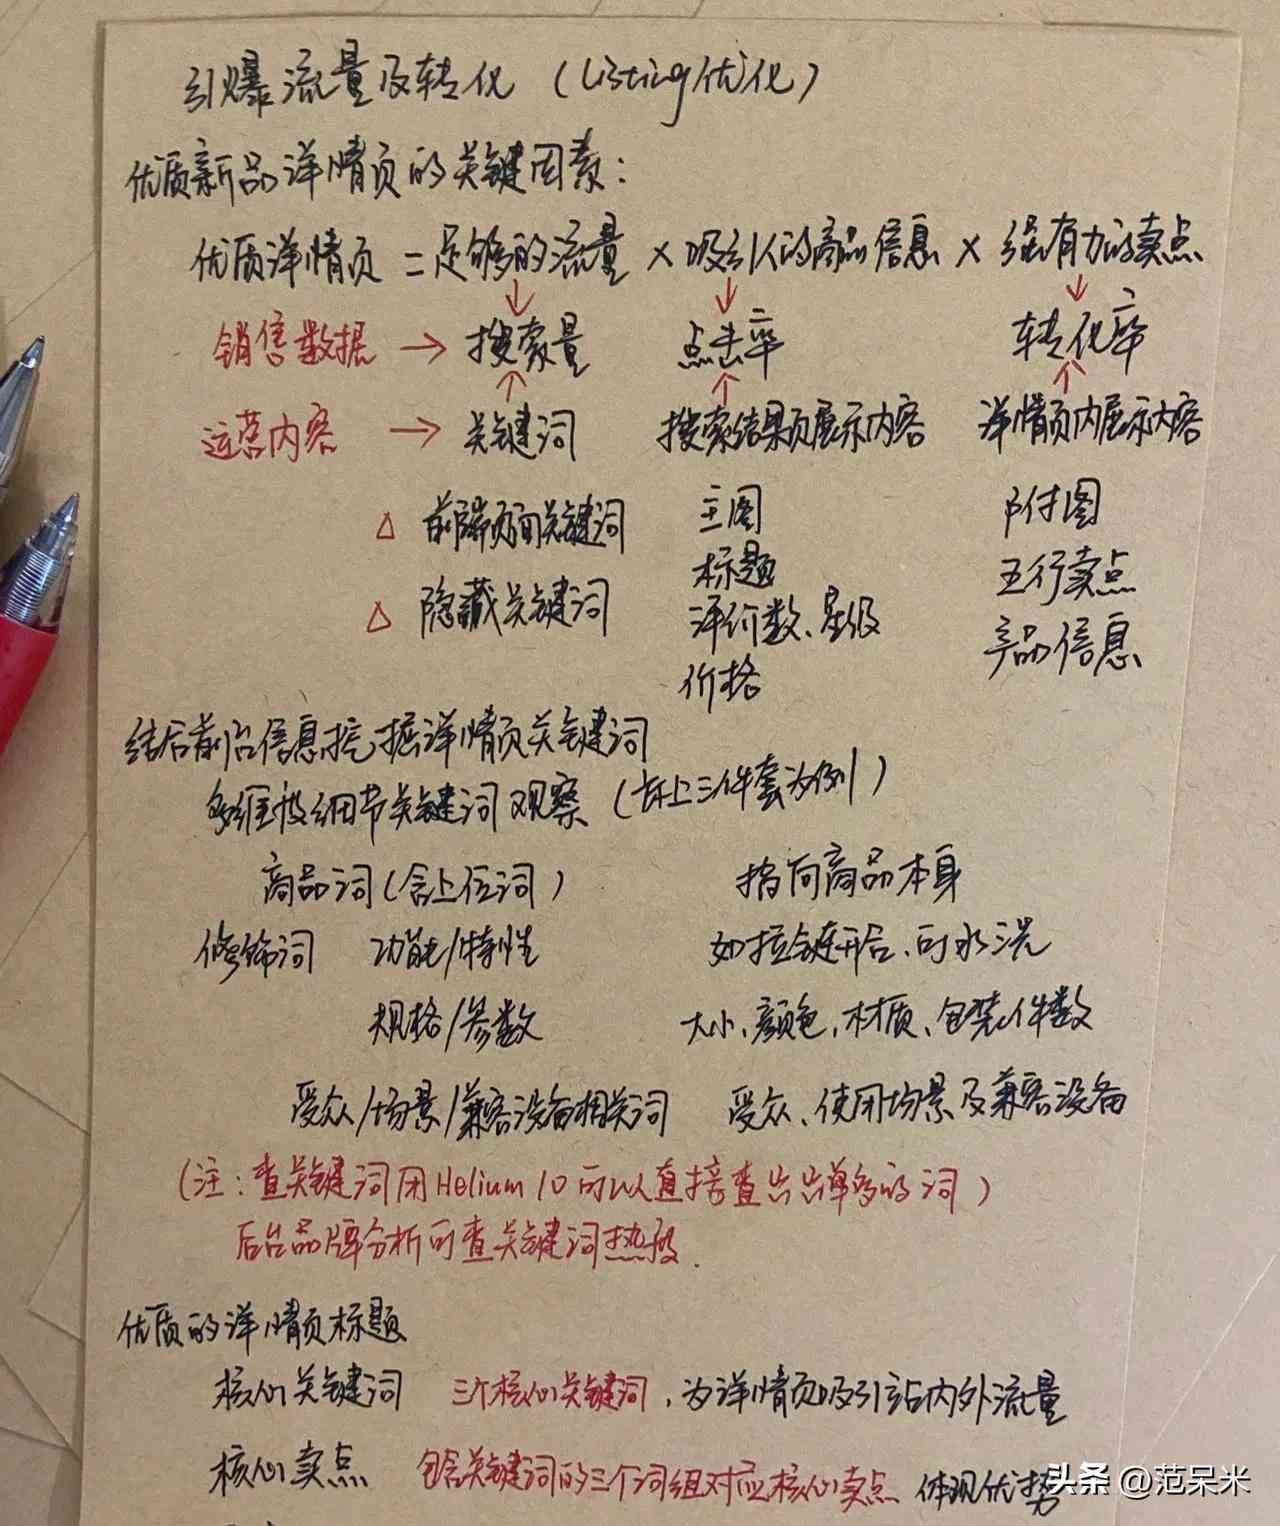 引爆流量及转化（Listing优化）
优质新品详情页的关键因素：
优质详情页 = 足够的流量 × 吸引人的商品信息 × 强有力的卖点
↓ ↓ ↓
销售数据 → 搜索量 点击率 转化率
↑ ↑ ↑
运营内容 → 关键词 搜索结果页展示内容 详情页内展示内容
△ 前端页面关键词 主图 附图
标题 五行卖点
△ 隐藏关键词 评价数、星级 产品信息
价格
结后前台信息挖掘详情页关键词
多维度细节关键词观察（床上三件套为例）
商品词（含上位词） 指向商品本身
修饰词 功能/特性 如拉链开合、可水洗
规格/参数 大小、颜色、材质、包装件数
受众/场景/兼容设备相关词 受众、使用场景及兼容设备
（注：查关键词用Helium 10可以直接查出出单多的词）
后台品牌分析可查关键词热度.
优质的详情页标题
核心关键词 三个核心关键词，为详情页吸引站内外流量
核心卖点 包含关键词的三个词组对应核心卖点 体现优势
头条 @范呆米